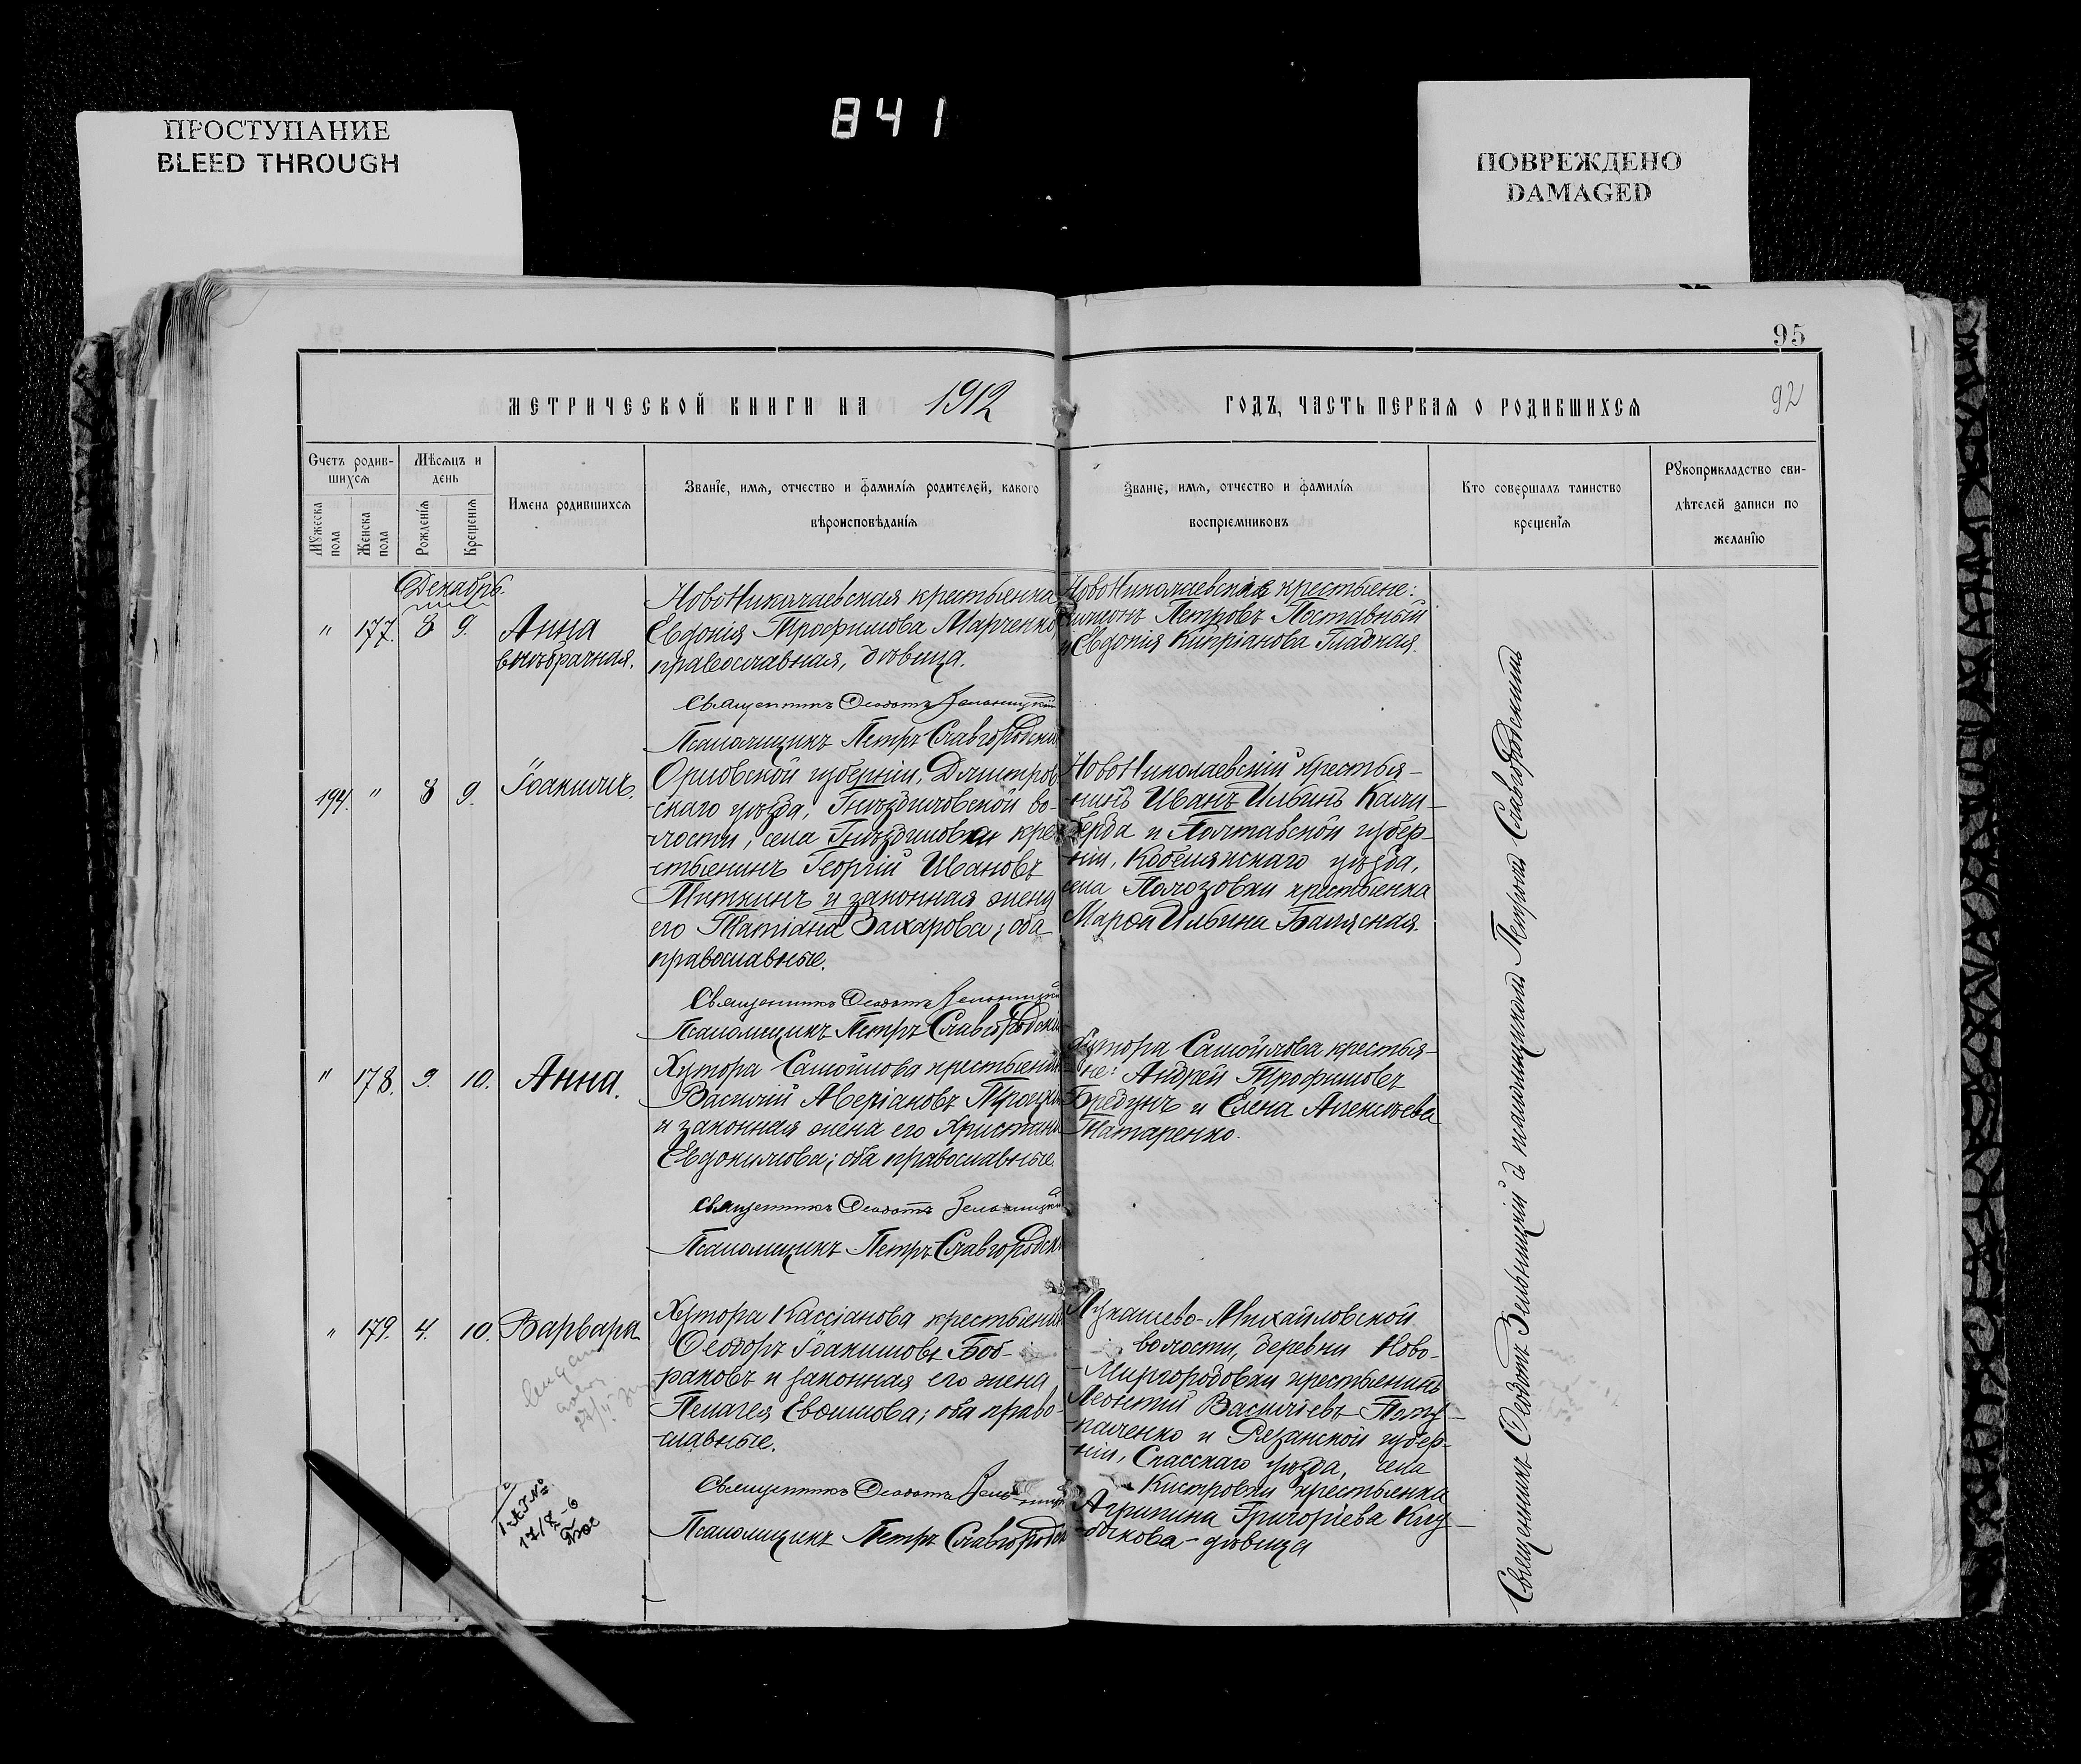 841
ПРОСТУПАНИЕ
BLEED THROUGH
ПОВРЕЖДЕНО
DAMAGED
95
92
МЕТРИЧЕСКОЙ КНИГИ НА 1912
ГОДЪ, ЧАСТЬ ПЕРВАЯ О РОДИВШИХСЯ
Счетъ родив-
шихся
Мѣсяцъ и
день
Имена родившихся
Званіе, имя, отчество и фамилія родителей, какого
вѣроисповѣданія
Званіе, имя, отчество и фамилія
воспріемниковъ
Кто совершалъ таинство
крещенія
Рукоприкладство сви-
дѣтелей записи по
желанію
Мужеска
пола
Женска
пола
Рожденія
Крещенія
Декабрь
" 177. 8 9.
Анна
внѣбрачная.
НовоНиколаевская крестьянка
Евдокія Трофимова Марченко,
православная, дѣвица.
Священникъ Ѳеодотъ Зельницкій
Псаломщикъ Петръ Славгородскій
НовоНиколаевскіе крестьяне:
Петровъ Поставный
и Евдокія Кипріанова Гладкая.
194. " 8 9.
Іоакимъ.
Орловской губерніи, Дмитров
скаго уѣзда, Гнѣздиловской во-
лости, села Гнѣздиловки кре
стьянинъ Георгій Ивановъ
Миткинъ и законная жена
его Татіана Захарова; оба
православные.
Священникъ Ѳеодотъ Зельницкій
Псаломщикъ Петръ Славгородскій
НовоНиколаевскій крестья-
нинъ Иванъ Ильинъ Кали-
берда и Полтавской губер-
ніи, Кобелякскаго уѣзда,
села Полозовки крестьянка
Марѳа Ильина Балясная.
" 178. 9. 10.
Анна.
Хутора Самойлова крестьянинъ
Василій Аверіановъ
и законная жена его Христина
Евдокимова; оба православные
Священникъ Ѳеодотъ Зельницкій
Псаломщикъ Петръ Славгородскій
Хутора Самойлова крестья-
не: Андрей Трофимовъ
Бредунъ и Елена Алексѣева
Татаренко.
" 179. 4. 10.
Варвара
Хутора Кассіанова крестьянинъ
Ѳеодоръ Іоакимовъ Боб-
раковъ и законная его жена
Пелагея Евѳимова; оба право-
славные.
Священникъ Ѳеодотъ Зельницкій
Псаломщикъ Петръ Славгородскій
Лукашево-Михайловской
волости, деревни Ново-
Миргородовки крестьянинъ
Леонтій Васильевъ
и Рязанской губер-
ніи, Спасскаго уѣзда, села
Кистровки крестьянка
Агрипина Григоріева Куд-
-дѣвица
Священникъ Ѳеодотъ Зельницкій съ псаломщикомъ Петромъ Славгородскимъ